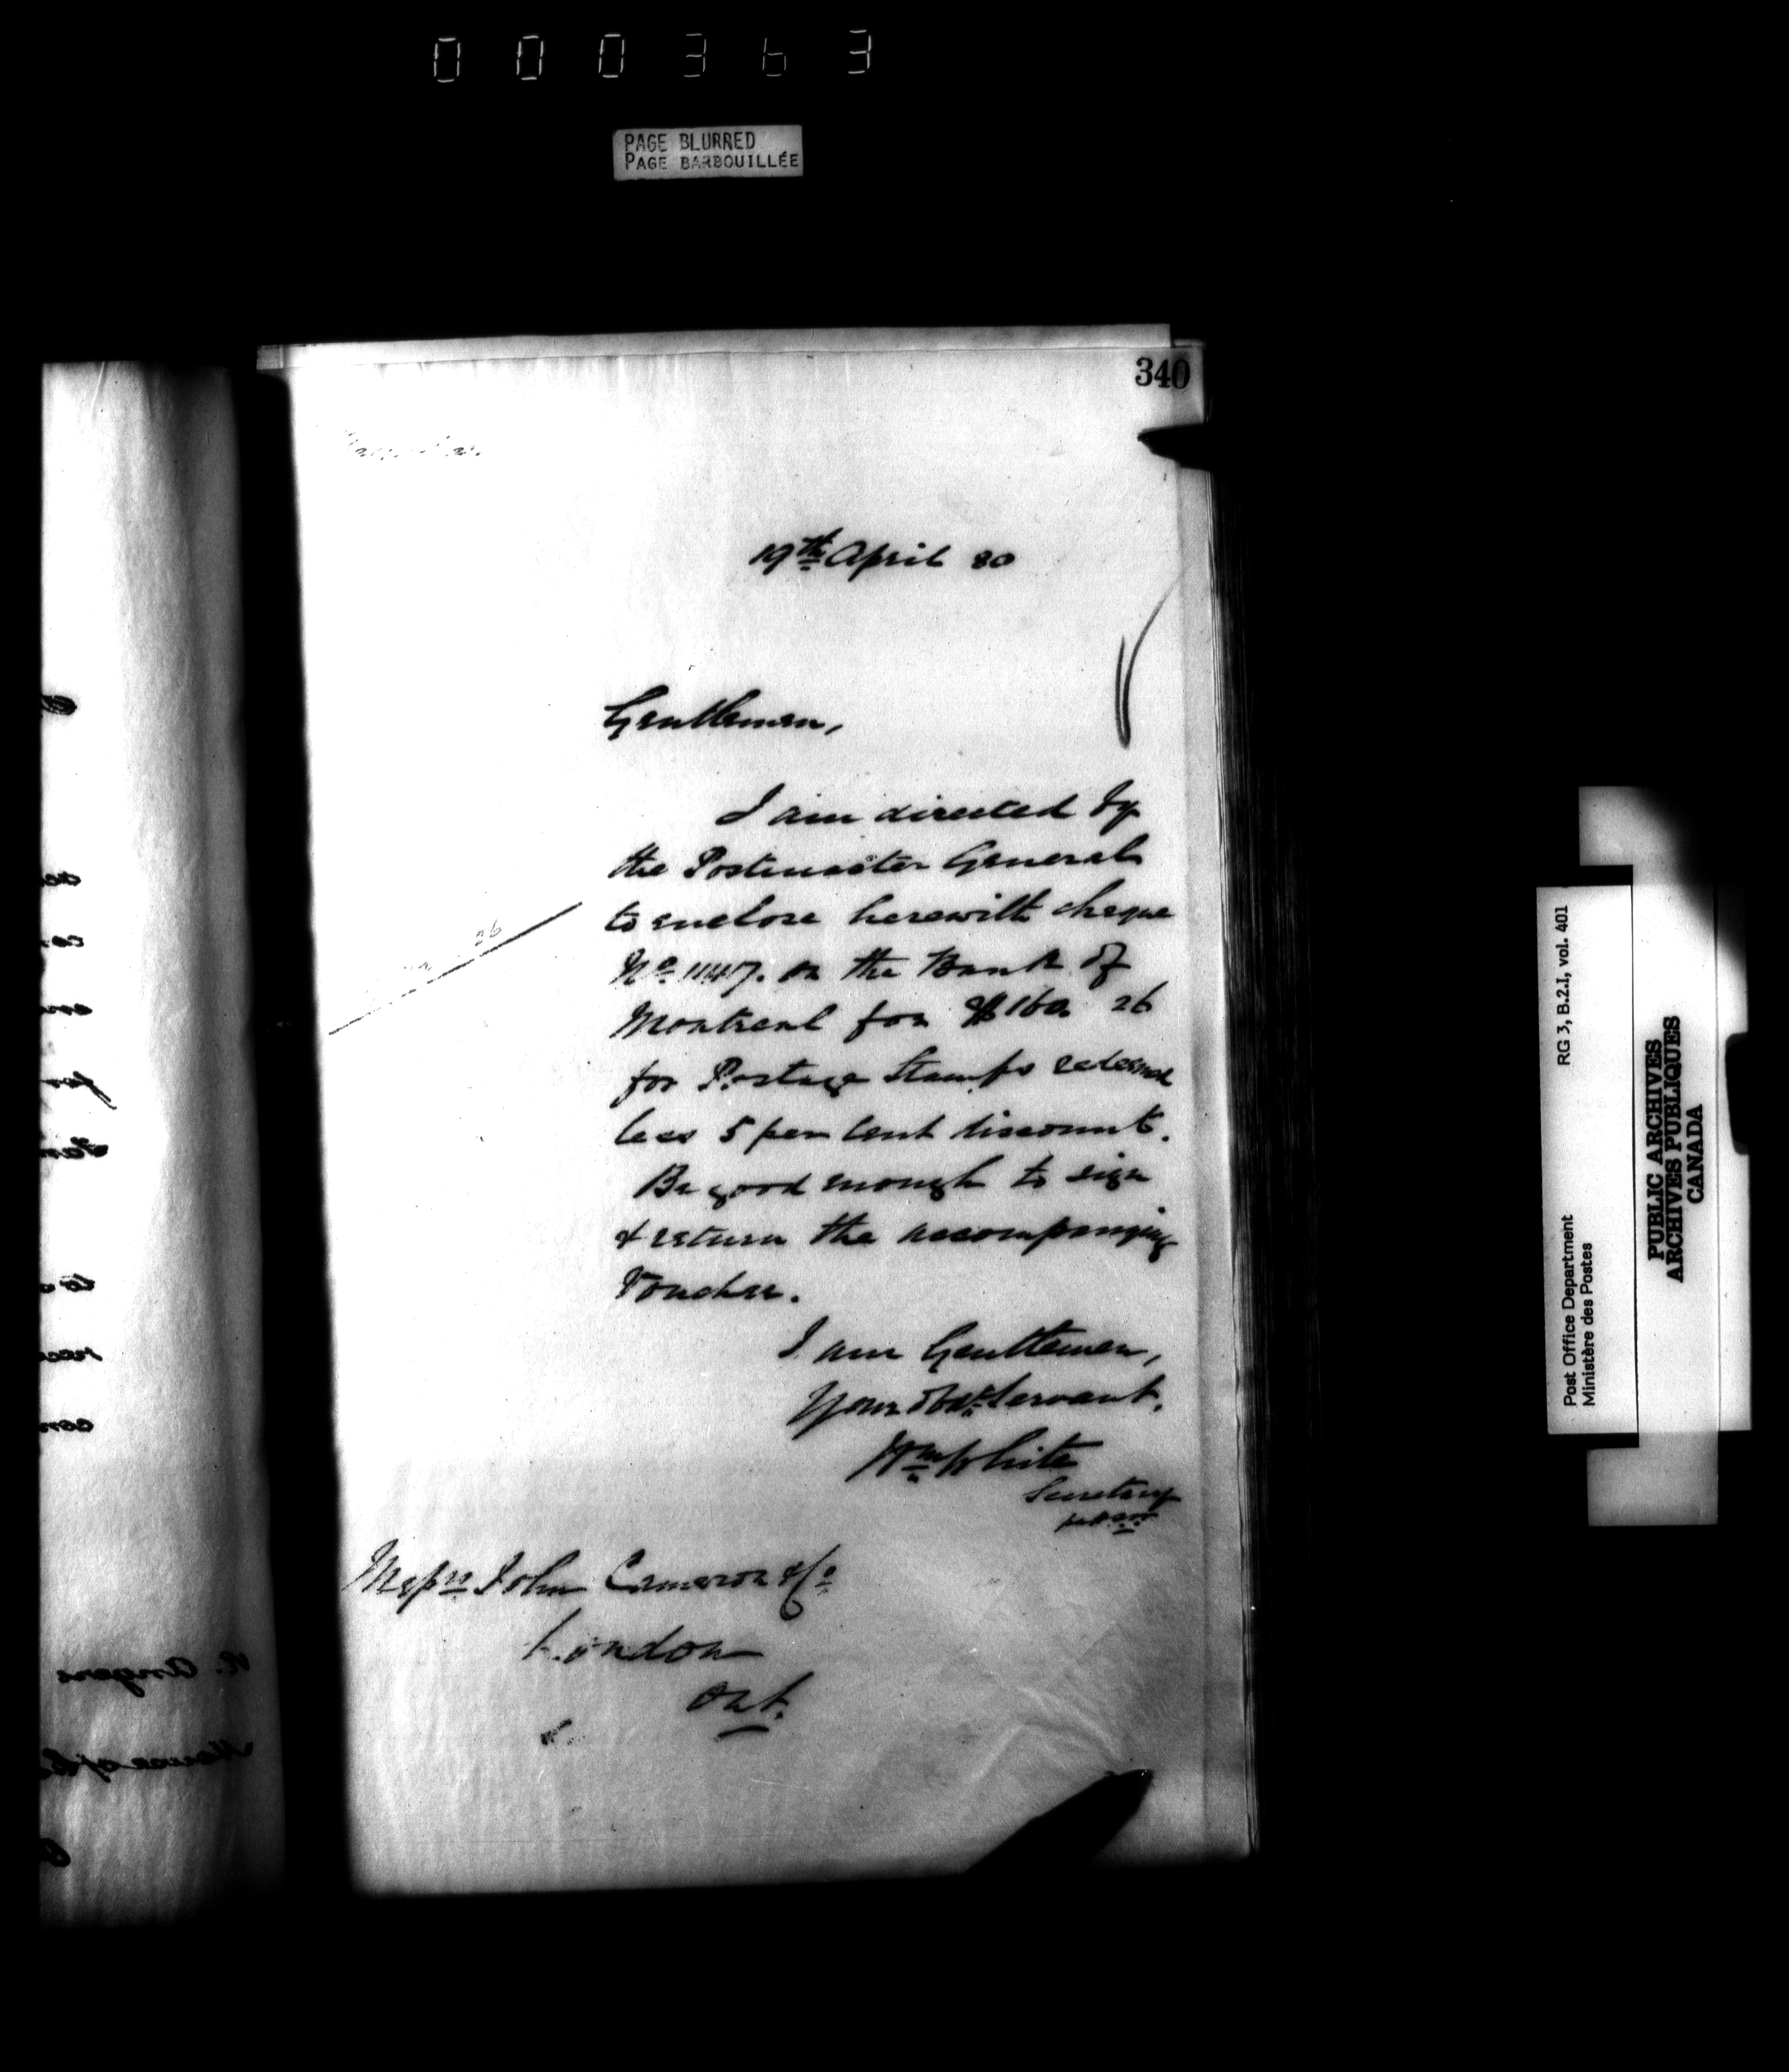 000363
PAGE BLURRED
PAGE BARBOUILLÉE
340
19th April 80
Gentlemen,
I am directed by
the Postmaster General
to enclose herewith cheque
No 1147. on the Bank of
Montreal for $160. 26
for Postage Stamps redeemed
less 5 per cent discount.
Be good enough to sign
& return the accompanying
Voucher.
I am Gentlemen,
Your Obdt Servant.
Wm White
Secretary
26
Messrs John Cameron & Co
London
Ont.
RG 3, B.2.I, vol. 401
Post Office Department
Ministère des Postes
PUBLIC ARCHIVES
ARCHIVES PUBLIQUES
CANADA